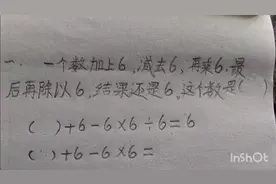 一. 一个数加上6,减去6,再乘6,最
后再除以6,结果还是6,这个数是( )
( )+6-6×6÷6=6
( )+6-6×6=
InShOt